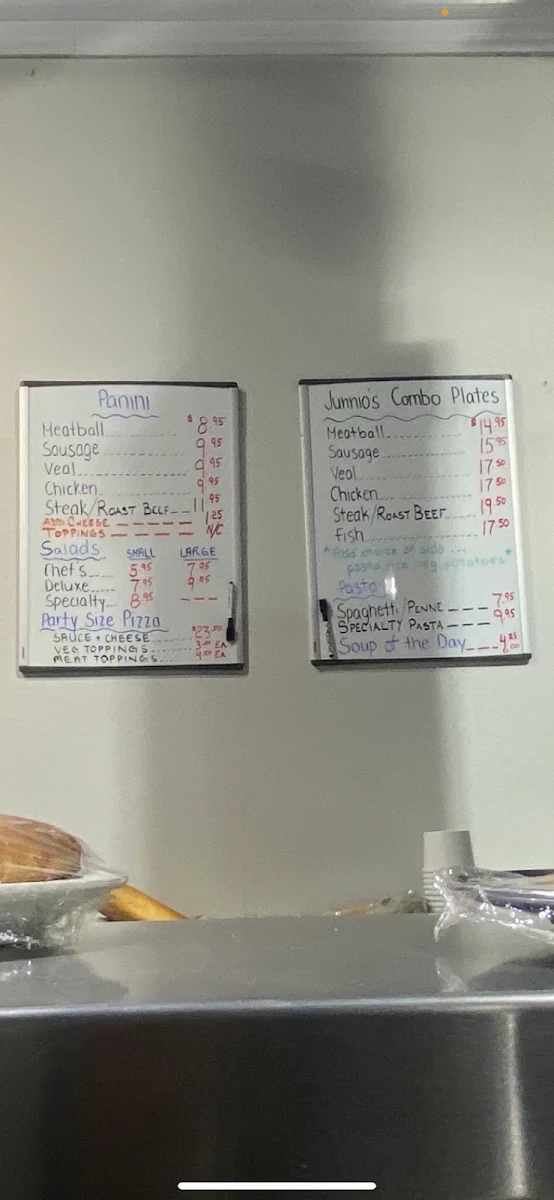 Panini
Meatball........ $8.95
Sausage........ 9.95
Veal........ 9.95
Chicken........ 9.95
Steak/ROAST BEEF-- 11.95
ADD CHEESE ----- 1.25
TOPPINGS ----- N/C
Salads SMALL LARGE
Chef's..... 5.95 7.95
Deluxe..... 7.95 9.95
Specialty... 8.95 ---
Party Size Pizza
SAUCE + CHEESE........ $23.00
VEG TOPPINGS........ 3.00 EA
MEAT TOPPINGS........ 4.00 EA
Junnio's Combo Plates
Meatball........ $14.95
Sausage........ 15.95
Veal........ 17.50
Chicken........ 17.50
Steak/ROAST BEEF 19.50
Fish........ 17.50
*Add choice of side ...
pasta rice veg potatoes*
Pasta
Spaghetti/PENNE --- 7.95
SPECIALTY PASTA --- 9.95
Soup of the Day---